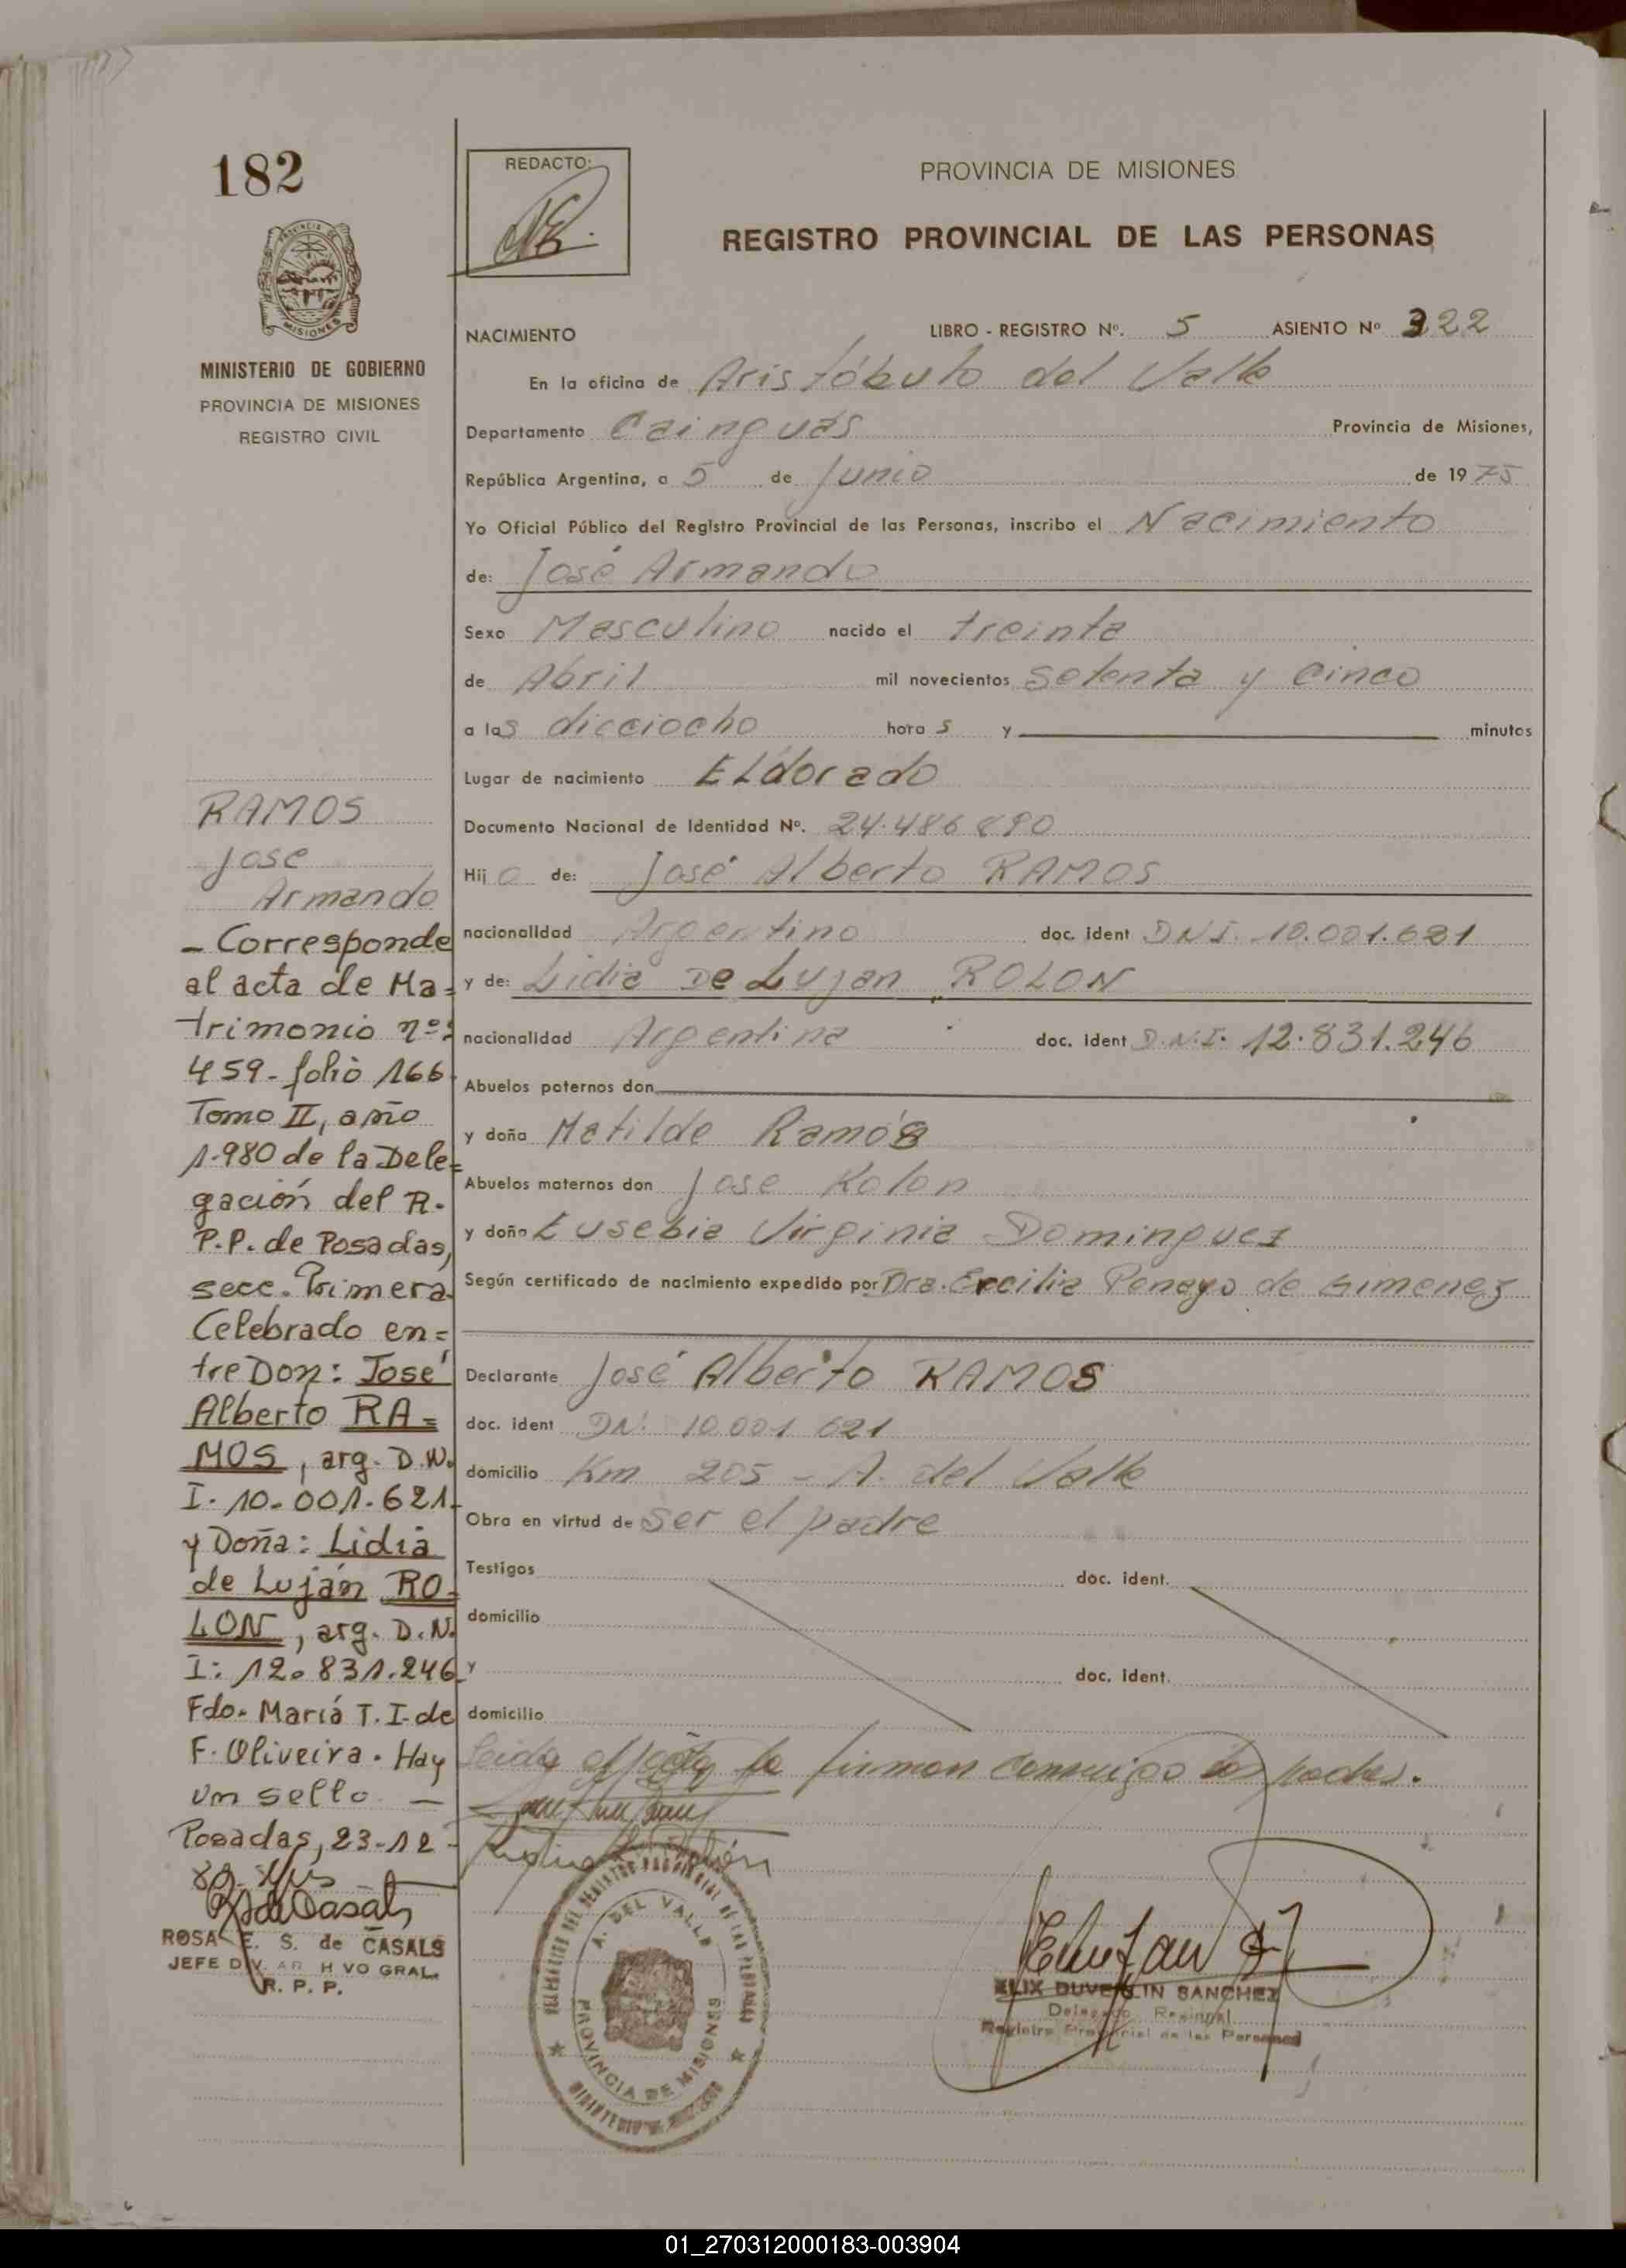 182
REDACTO:
PROVINCIA DE MISIONES
REGISTRO PROVINCIAL DE LAS PERSONAS
PROVINCIA DE
MISIONES
MINISTERIO DE GOBIERNO
PROVINCIA DE MISIONES
REGISTRO CIVIL
NACIMIENTO LIBRO - REGISTRO Nº. 5 ASIENTO Nº 322
En la oficina de Aristóbulo del Valle
Departamento Cainguás Provincia de Misiones,
República Argentina, a 5 de Junio de 1975
Yo Oficial Público del Registro Provincial de las Personas, inscribo el Nacimiento
de: José Armando
Sexo Masculino nacido el treinta
de Abril mil novecientos setenta y cinco
a las dieciocho horas y minutos
Lugar de nacimiento ELdorado
Documento Nacional de Identidad Nº. 24.486
Hijo de: José Alberto RAMOS
nacionalidad Argentino doc. ident DNI. 10.001.621
y de: Lidia De Lujan ROLON
nacionalidad Argentina doc. ident D.N.I. 12.831.246
Abuelos paternos don
y doña Matilde Ramós
Abuelos maternos don Jose Rolon
y doña Eusebia Virginia Dominguez
Según certificado de nacimiento expedido por Dra. Ercilia Penayo de Gimenez
Declarante José Alberto RAMOS
doc. ident DN. 10.001 621
domicilio Km 205 - A. del Valle
Obra en virtud de ser el padre
Testigos doc. ident.
domicilio
y doc. ident.
domicilio
Leida el acta la firman conmigo los padres.
RAMOS
Jose
Armando
- Corresponde
al acta de Ma=
trimonio nº:
459- folio 166
Tomo II, año
1.980 de la Dele=
gación del R.
P.P. de Posadas,
secc. Primera
Celebrado en=
tre Don: José
Alberto RA=
MOS, arg. D.N.
I. 10.001.621.
y Doña: Lidia
de Luján RO=
LON, arg. D.N.
I: 12.831.246
Fdo. María T. I. de
F. Oliveira. Hay
un sello. —
Posadas, 23-12-
ROSA E. S. de CASALS
JEFE DIV. ARCHIVO GRAL.
R. P. P.
A. DEL VALLE
PROVINCIA DE MISIONES
ELIX DUVERLIN SANCHEZ
Delegado Regional
Registro Provincial de las Personas
01_270312000183-003904